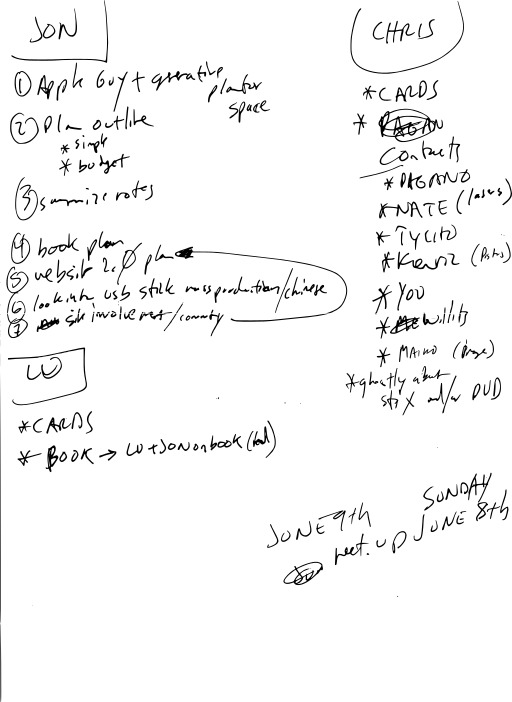 JON
① Apple Guy + generative
planter
space
② Plan outline
* simple
* budget
③ summize notes
④ book plan
⑤ website 2.0 plan
⑥ look into usb stick mass production/chinese
⑦ site involvement/community
LU
* CARDS
* BOOK → LU + JON on book
CHRIS
* CARDS
*
Contacts
* PAGANO
* NATE (lasers)
*
*
* YOU
* willits
* MAIKO
* ghostly about
and/or DVD
JUNE 9th
meet.up
SUNDAY
JUNE 8th